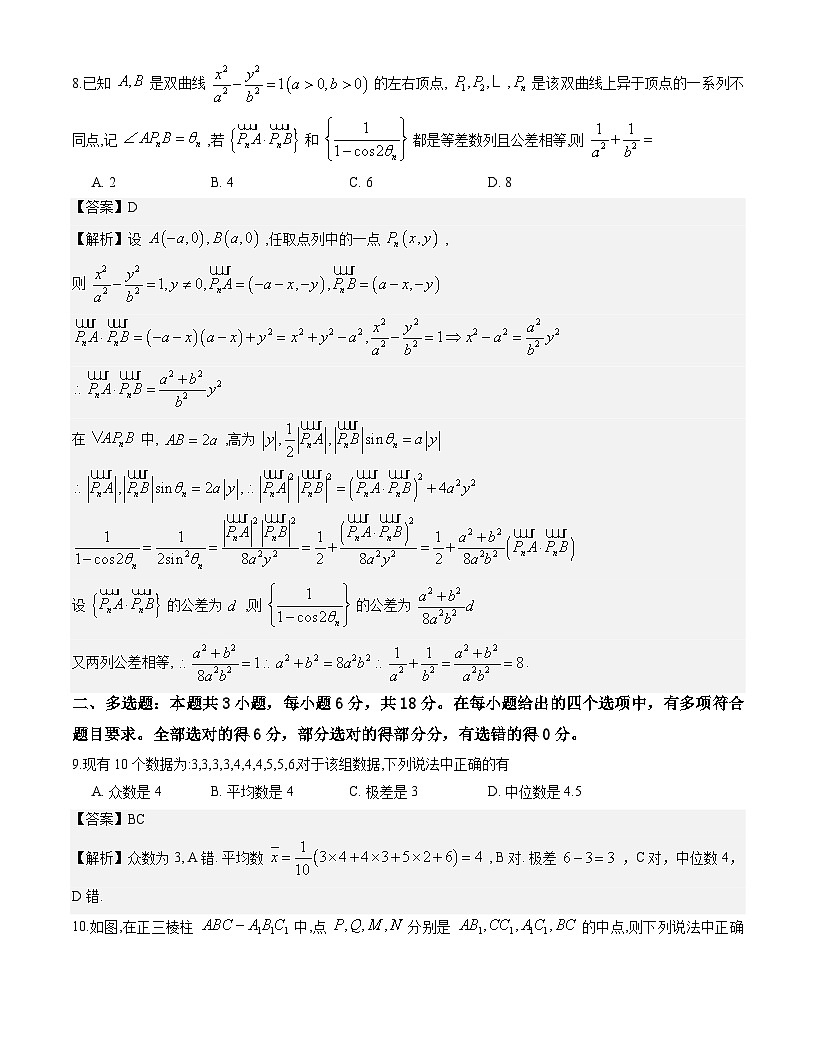 8.已知 A,B 是双曲线 x²/a² − y²/b² = 1(a > 0, b > 0) 的左右顶点, P₁,P₂,L ,Pₙ 是该双曲线上异于顶点的一系列不
同点,记 ∠APₙB = θₙ ,若 {PₙA·PₙB} 和 {1/(1−cos2θₙ)} 都是等差数列且公差相等,则 1/a² + 1/b² =
A. 2 B. 4 C. 6 D. 8
【答案】D
【解析】设 A(−a,0), B(a,0) ,任取点列中的一点 Pₙ(x,y) ,
则 x²/a² − y²/b² = 1, y ≠ 0, PₙA = (−a−x,−y), PₙB = (a−x,−y)
PₙA·PₙB = (−a−x)(a−x)+y² = x²+y²−a², x²/a² − y²/b² = 1 ⇒ x²−a² = a²/b² y²
∴ PₙA·PₙB = (a²+b²)/b² y²
在 VAPₙB 中, AB = 2a ,高为 |y|, 1/2 |PₙA|,|PₙB| sinθₙ = a|y|
∴ |PₙA|,|PₙB| sinθₙ = 2a|y|, ∴ |PₙA|²|PₙB|² = (PₙA·PₙB)² + 4a²y²
1/(1−cos2θₙ) = 1/(2sin²θₙ) = |PₙA|²|PₙB|²/(8a²y²) = 1/2 + (PₙA·PₙB)²/(8a²y²) = 1/2 + (a²+b²)/(8a²b²) (PₙA·PₙB)
设 {PₙA·PₙB} 的公差为 d ,则 {1/(1−cos2θₙ)} 的公差为 (a²+b²)/(8a²b²) d
又两列公差相等, ∴ (a²+b²)/(8a²b²) = 1 ∴ a²+b² = 8a²b² ∴ 1/a² + 1/b² = (a²+b²)/(a²b²) = 8 .
二、多选题：本题共3小题，每小题6分，共18分。在每小题给出的四个选项中，有多项符合
题目要求。全部选对的得6分，部分选对的得部分分，有选错的得0分。
9.现有 10 个数据为:3,3,3,3,4,4,4,5,5,6,对于该组数据,下列说法中正确的有
A. 众数是 4 B. 平均数是 4 C. 极差是 3 D. 中位数是 4.5
【答案】BC
【解析】众数为 3, A 错. 平均数 x̄ = 1/10 (3×4+4×3+5×2+6) = 4 , B 对. 极差 6−3=3 ，C 对，中位数 4，
D 错.
10.如图,在正三棱柱 ABC − A₁B₁C₁ 中,点 P,Q,M,N 分别是 AB₁,CC₁,A₁C₁,BC 的中点,则下列说法中正确